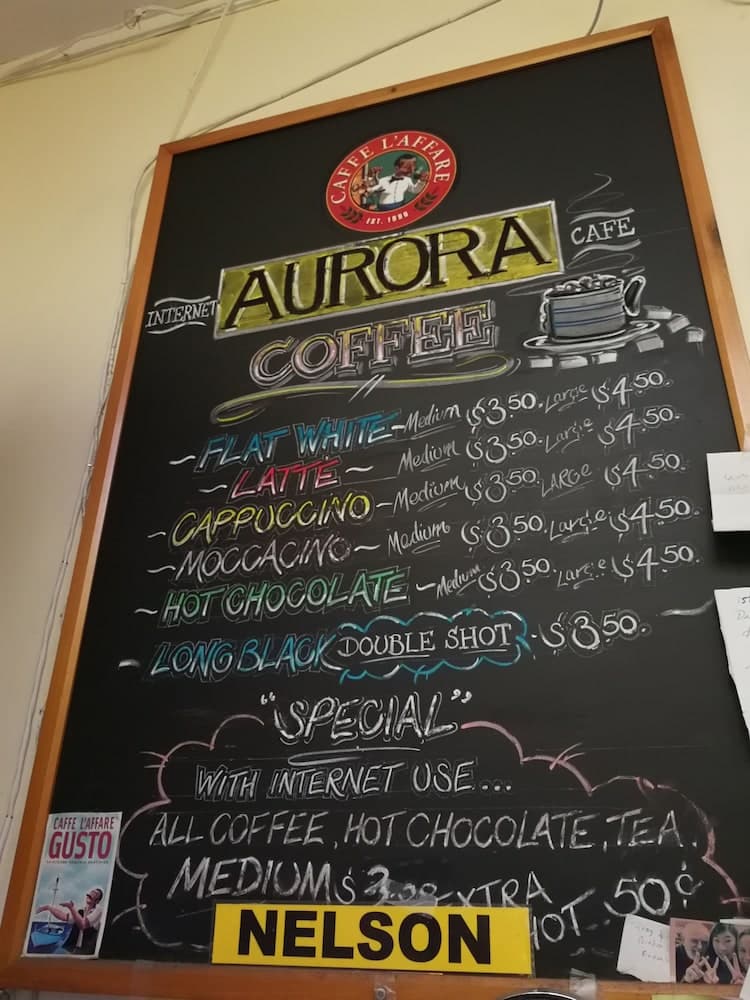 CAFFE L'AFFARE
EST. 1990
INTERNET AURORA CAFE
COFFEE
~ FLAT WHITE ~ Medium $3.50. Large $4.50.
~ LATTE ~ Medium $3.50. Large $4.50.
~ CAPPUCCINO ~ Medium $3.50. LARGE $4.50.
~ MOCCACINO ~ Medium $3.50. Large $4.50.
~ HOT CHOCOLATE ~ Medium $3.50. Large $4.50.
~ LONG BLACK DOUBLE SHOT ~ $3.50.
"SPECIAL"
WITH INTERNET USE...
ALL COFFEE, HOT CHOCOLATE, TEA.
MEDIUM $3.00 EXTRA SHOT 50¢
CAFFE L'AFFARE
GUSTO
NELSON